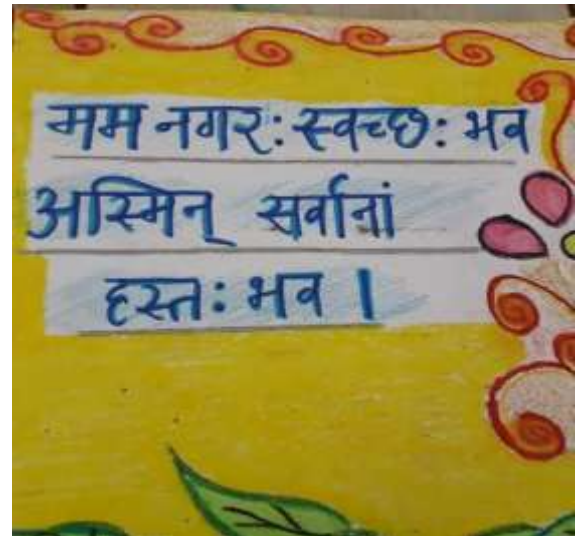 मम नगर: स्वच्छ: भव
अस्मिन् सर्वानां
हस्त: भव ।